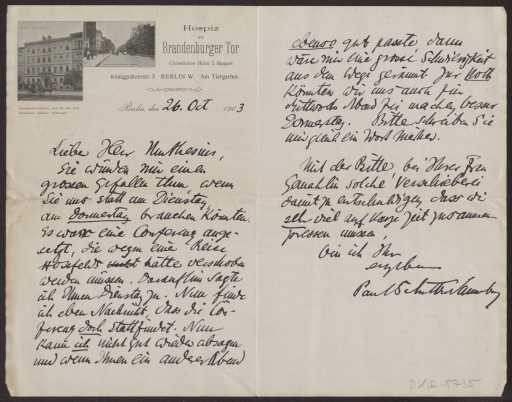 Hospiz
am
Brandenburger Tor
Königgrätzerstr. 5 BERLIN W. Am Tiergarten.
Berlin, den 26. Oct 1903
Liebe Herr Muthesius,
Sie würden mir einen
grossen Gefallen thun, wenn
Sie uns statt am Dienstag
am Donnerstag brauchen könnten.
Es war eine Conferenz ange-
setzt, die wegen eine Reise
hätte verschoben
werden müssen. Daraufhin sagte
ich Ihnen Dienstag zu. Nun finde
ich eben Nachricht, dass die Con-
ferenz doch stattfindet. Nun
kann ich nicht gut wieder absagen
und wenn Ihnen ein anderer Abend
ebenso gut passte dann
wäre mir eine grosse Schwierigkeit
aus dem Wege geräumt. Zur Noth
könnten wir uns auch für
Mittwoch Abend frei machen, besser
Donnerstag. Bitte schreiben Sie
mir gleich ein Wort
Mit der Bitte, bei Ihrer Frau
Gemahlin solche
damit zu entschuldigen, dass wir
sehr viel auf kurze Zeit zusammen
pressen müssen,
bin ich Ihr
ergebener
Paul Schultze Naumburg